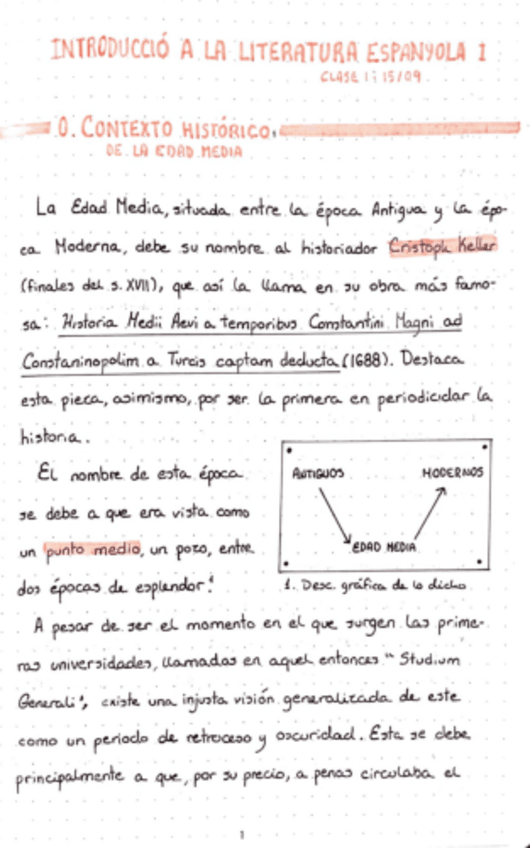 INTRODUCCIÓ A LA LITERATURA ESPANYOLA I
CLASE 1: 15/09
0. CONTEXTO HISTÓRICO
DE LA EDAD MEDIA
La Edad Media, situada entre la época Antigua y la épo-
ca Moderna, debe su nombre al historiador Cristoph Keller
(finales del s. XVII), que así la llama en su obra más famo-
sa: Historia Medii Aevi a temporibus Constantini Magni ad
Constaninopolim a Turcis captam deducta (1688). Destaca
esta pieza, asimismo, por ser la primera en periodicidar la
historia.
El nombre de esta época
se debe a que era vista como
un punto medio, un pozo, entre
dos épocas de esplendor.¹
ANTIGUOS MODERNOS
EDAD MEDIA
1. Desc. gráfica de lo dicho
A pesar de ser el momento en el que surgen las prime-
ras universidades, llamadas en aquel entonces "Studium
Generali", existe una injusta visión generalizada de este
como un periodo de retroceso y oscuridad. Esta se debe
principalmente a que, por su precio, a penas circulaba el
1